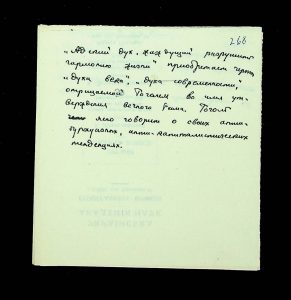 268
„Адский дух, жаждущий разрушить
гармонию жизни" приобретает черты
„духа века", „духа современности",
отрицаемой Гоголем во имя ут-
верждения вечного Рима. Гоголь
ясно говорит о своих анти-
буржуазных, анти-капиталистических
тенденциях.